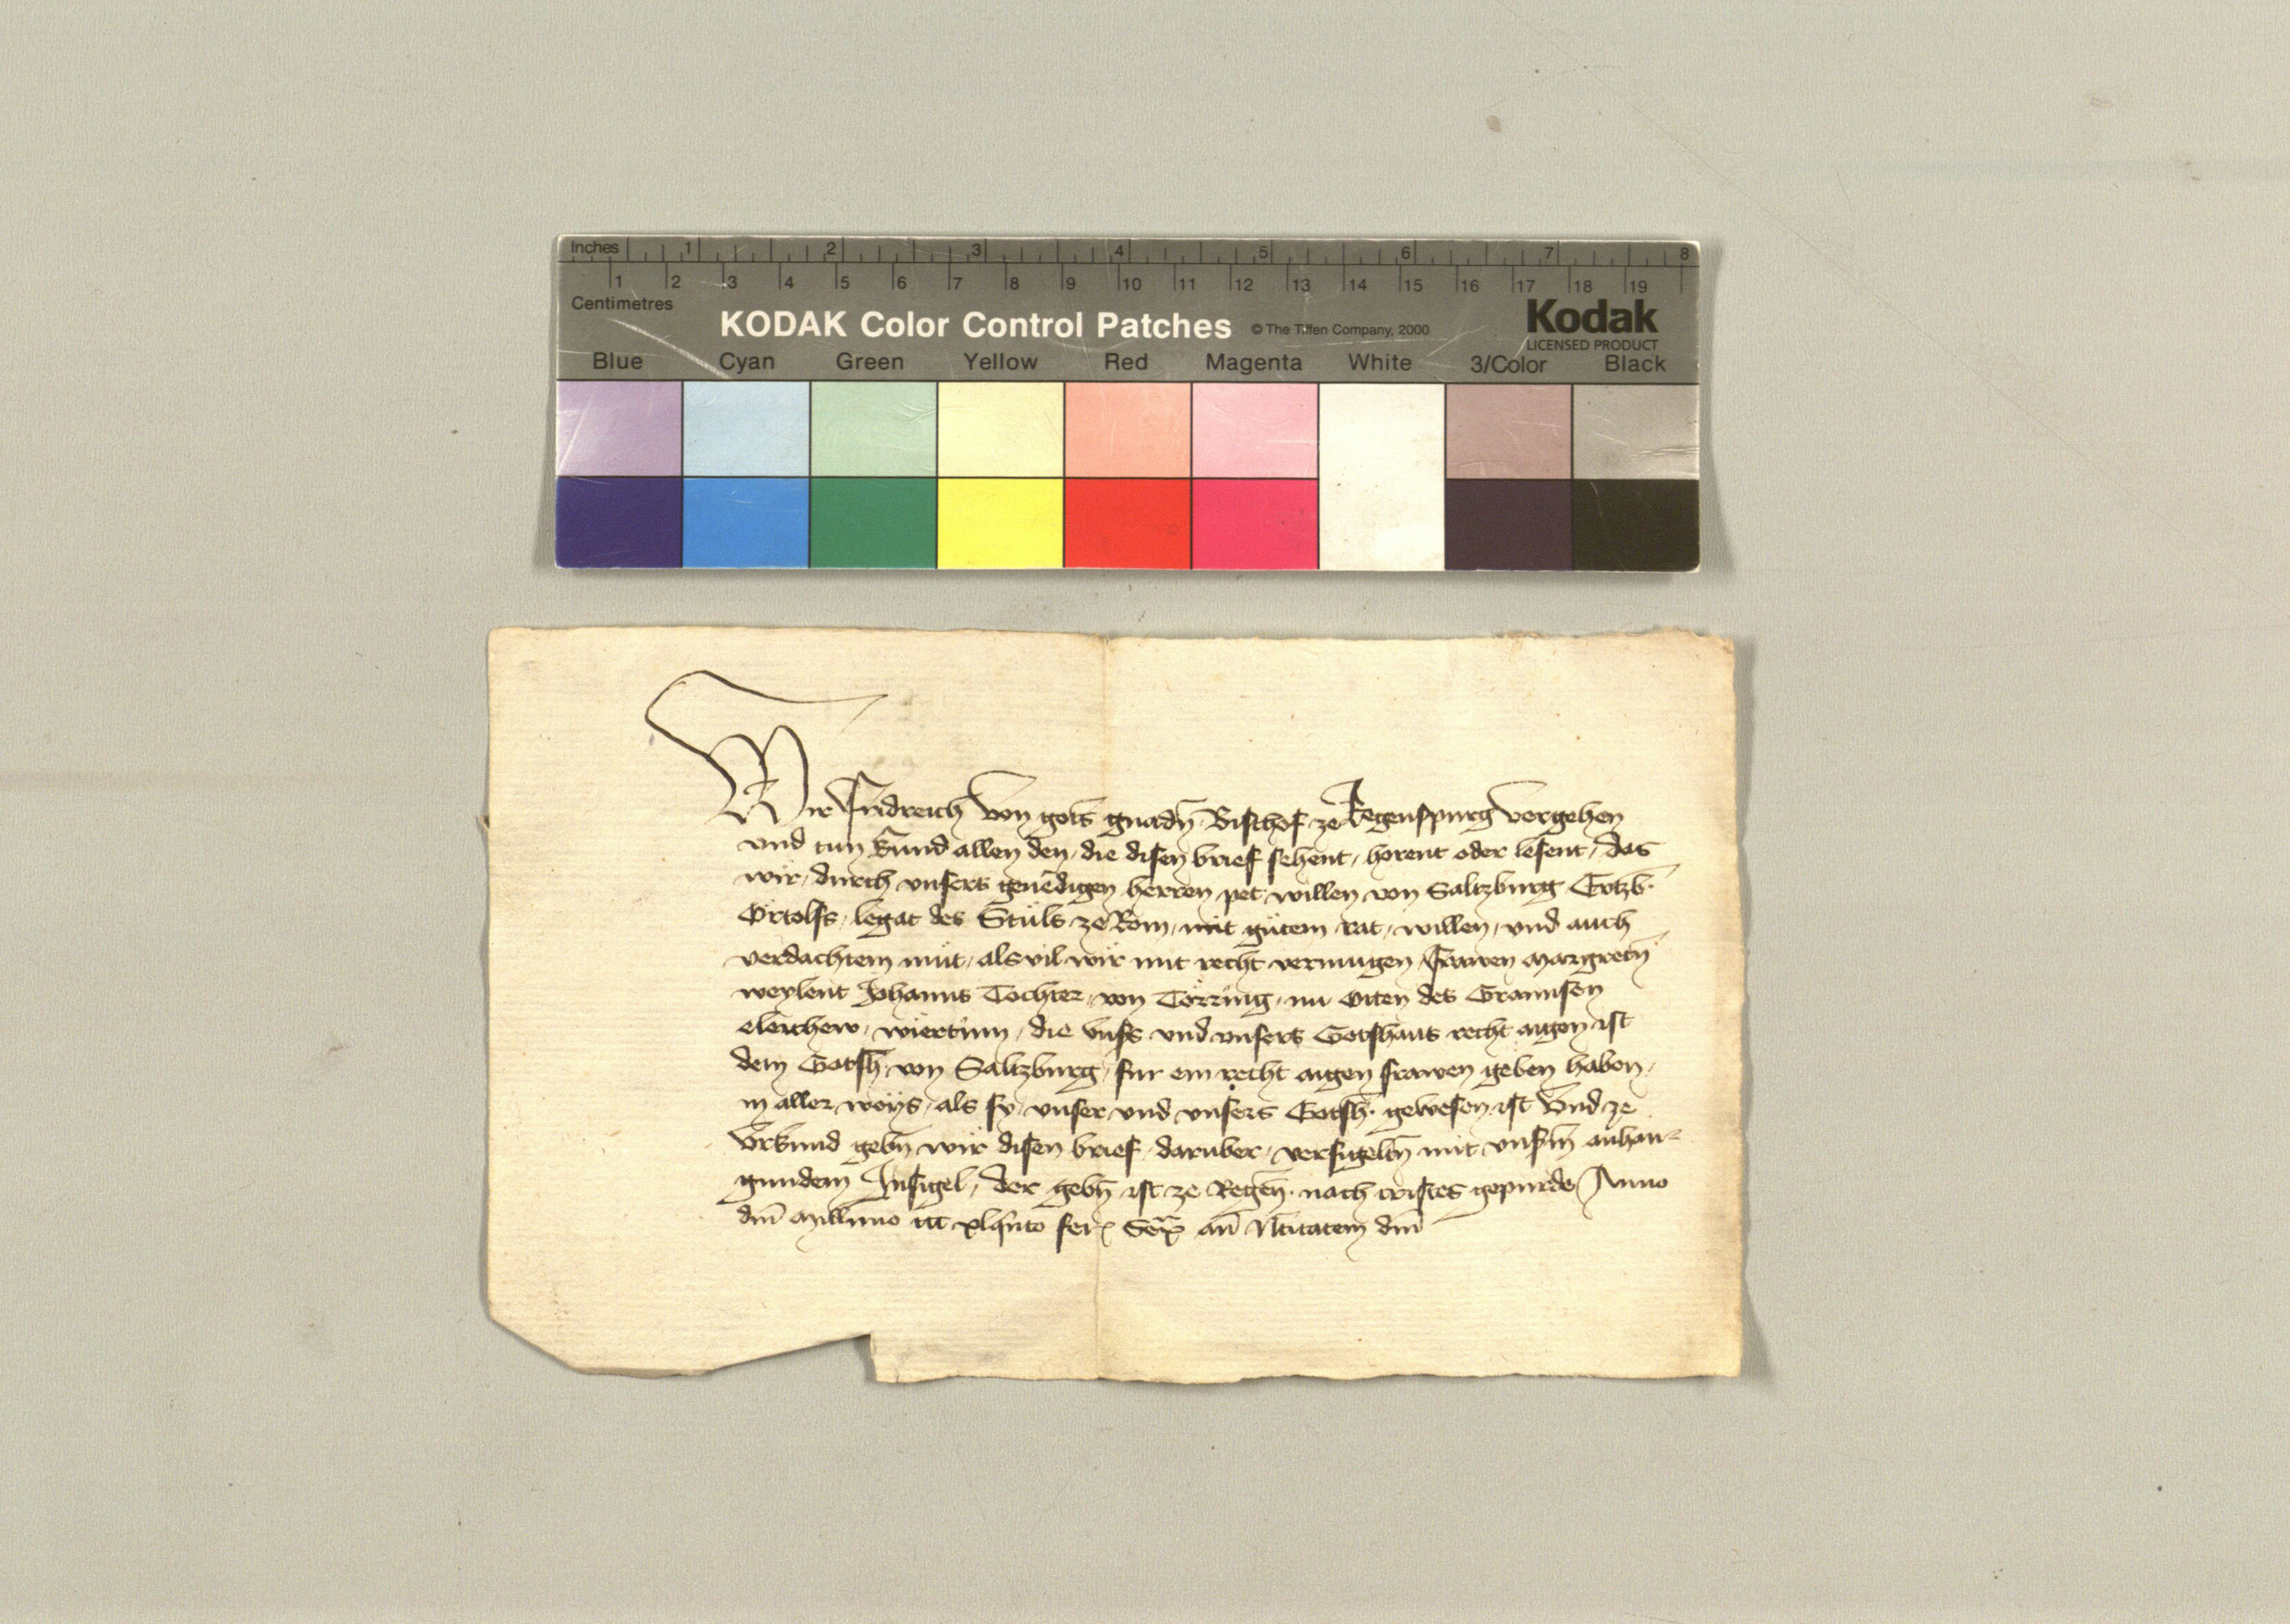 Inches 1 2 3 4 5 6 7 8
1 2 3 4 5 6 7 8 9 10 11 12 13 14 15 16 17 18 19
Centimetres
KODAK Color Control Patches © The Tiffen Company, 2000 Kodak
LICENSED PRODUCT
Blue Cyan Green Yellow Red Magenta White 3/Color Black
Wir Fridreich von gots gnadn̄ Bischof ze Regenspurg vergehen
vnd tun kund allen den, die disen brief sehent, horent oder lesent, das
wir, durch vnsers genedigen herren pet willen von Saltzburg Ertzb.
Ortolfs, legat des Stůls ze Rom, mit gůtem rat, willen, vnd auch
verdachtem můt, als vil wir mit recht vermugen, frawen Margretn̄
weylent Johanns Tochter, von Törring, nu Otten des
eleichew, wiertinn, die vnss vnd vnsers Gotshaus recht aigen ist
dem Gotsh. von Saltzburg, fur ein recht aigen frawen geben haben,
in aller weÿs, als sy, vnser vnd vnsers Gotsh. gewesen ist Vnd ze
Vrkund gebn̄ wir disen brief, daruber, versigeltn̄ mit vnsm̄ anhan-
gundem Insigel, der gebn̄ ist ze Regen̄. nach cristes gepurde Anno
dn̄i Millimo iii xlqinto an̄ Ntitatem dn̄i